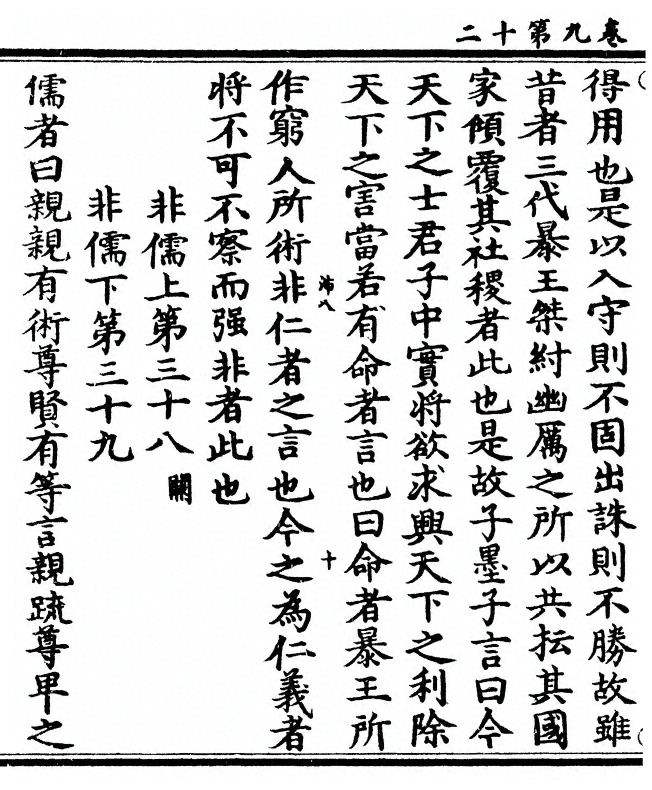 卷九第十二
得用也是以入守則不固出誅則不勝故雖
昔者三代暴王桀紂幽厲之所以共抎其國
家傾覆其社稷者此也是故子墨子言曰今
天下之士君子中實將欲求興天下之利除
天下之害當若有命者言也曰命者暴王所
作窮人所術非仁者之言也今之為仁義者
將不可不察而强非者此也
非儒上第三十八 闕
非儒下第三十九
儒者曰親親有術尊賢有等言親疏尊卑之